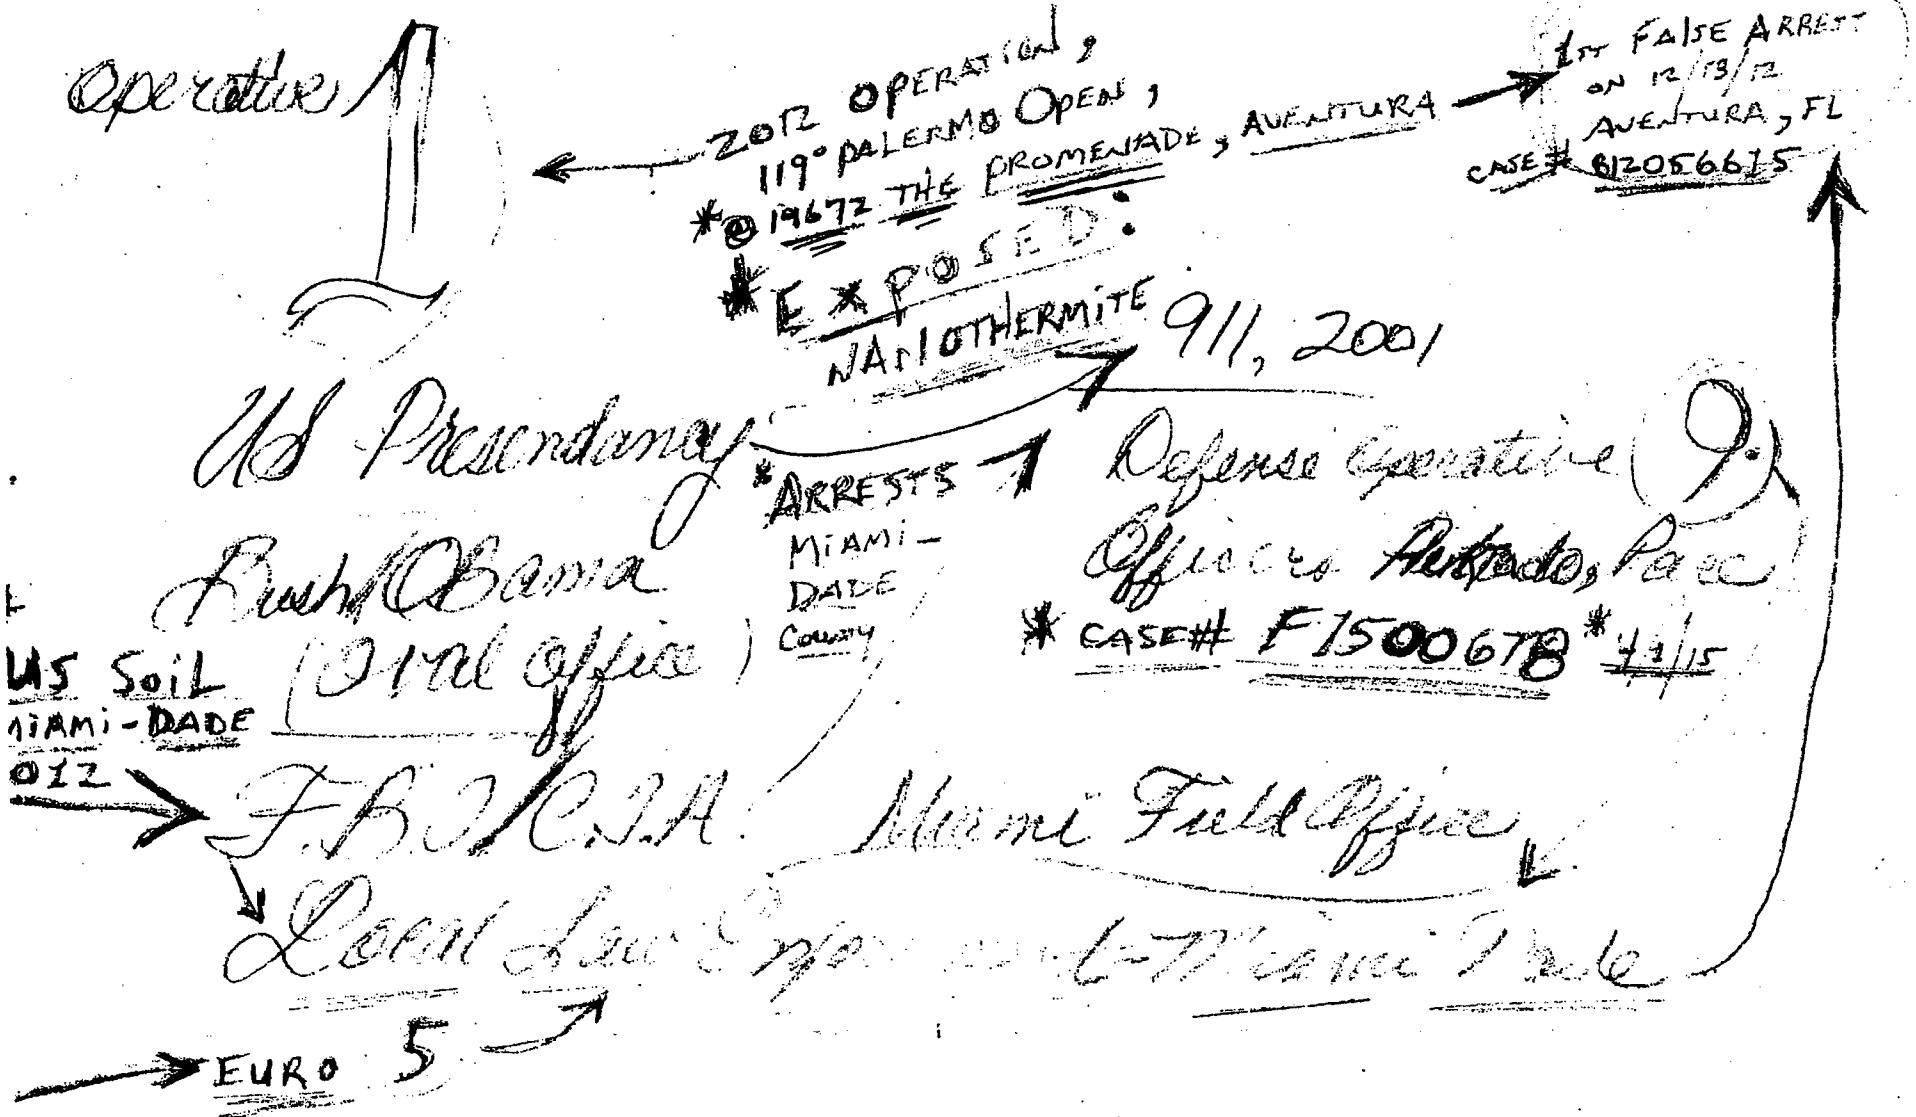 Operative 1
2012 OPERATION,
119° PALERMO OPEN,
*@ 19672 THE PROMENADE, AVENTURA
1ST FALSE ARREST
ON 12/13/12
AVENTURA, FL
CASE# B12056615
*EXPOSED:
NANOTHERMITE
911, 2001
US Presendancy
*ARRESTS
MIAMI-
DADE
COUNTY
Defense Operative (9.)
Bush/OBama
Officers Pace
(Oval Office)
* CASE# F1500678 *
US SOIL
MIAMI-DADE
012
F.B.I./C.I.A. Miami Field Office
Local Law Enforcement-Miami Dade
EURO 5